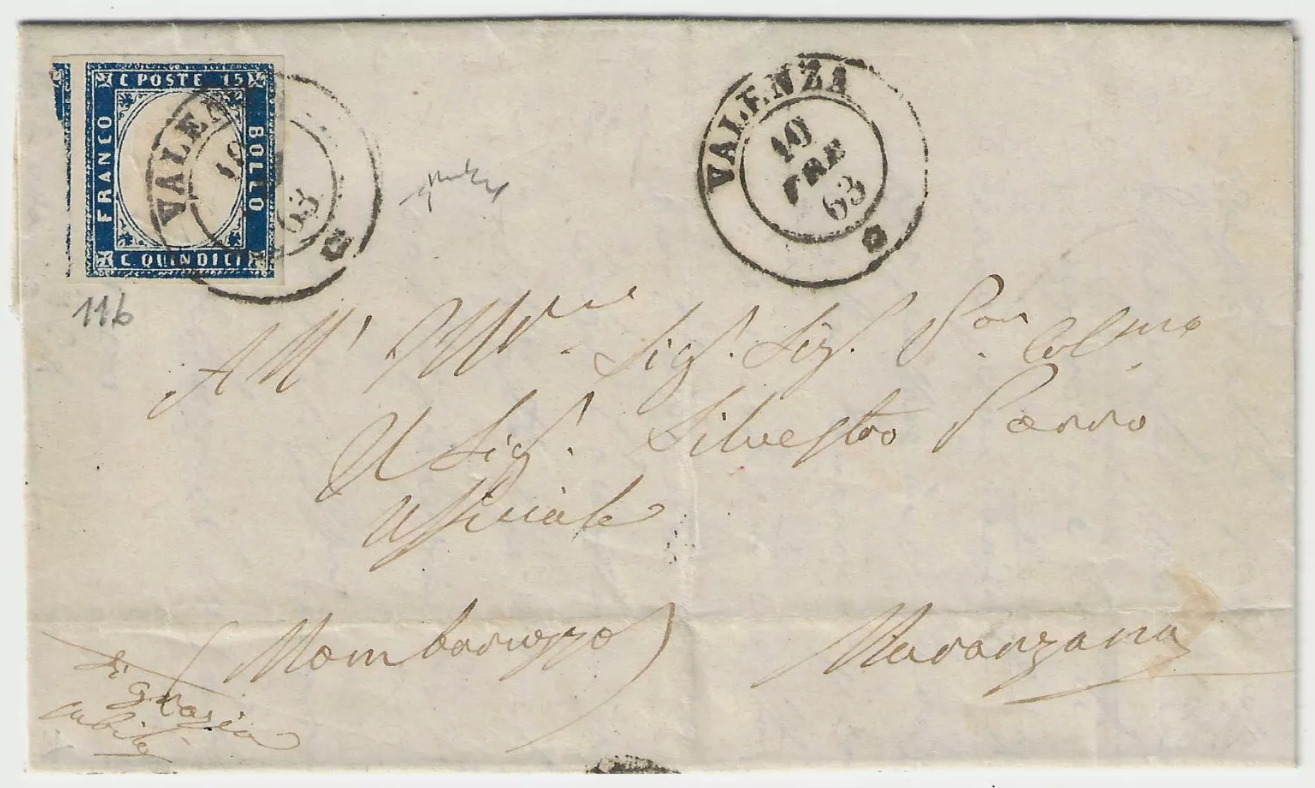 C POSTE 15
FRANCO
BOLLO
C QUINDICI
VALEN
63
VALENZA
10
FBE
63
116
All' Sig. Sig.
Sig. Silvestro
Ufficiale
(Mombaruzzo) Maranzana
di grazia
subito